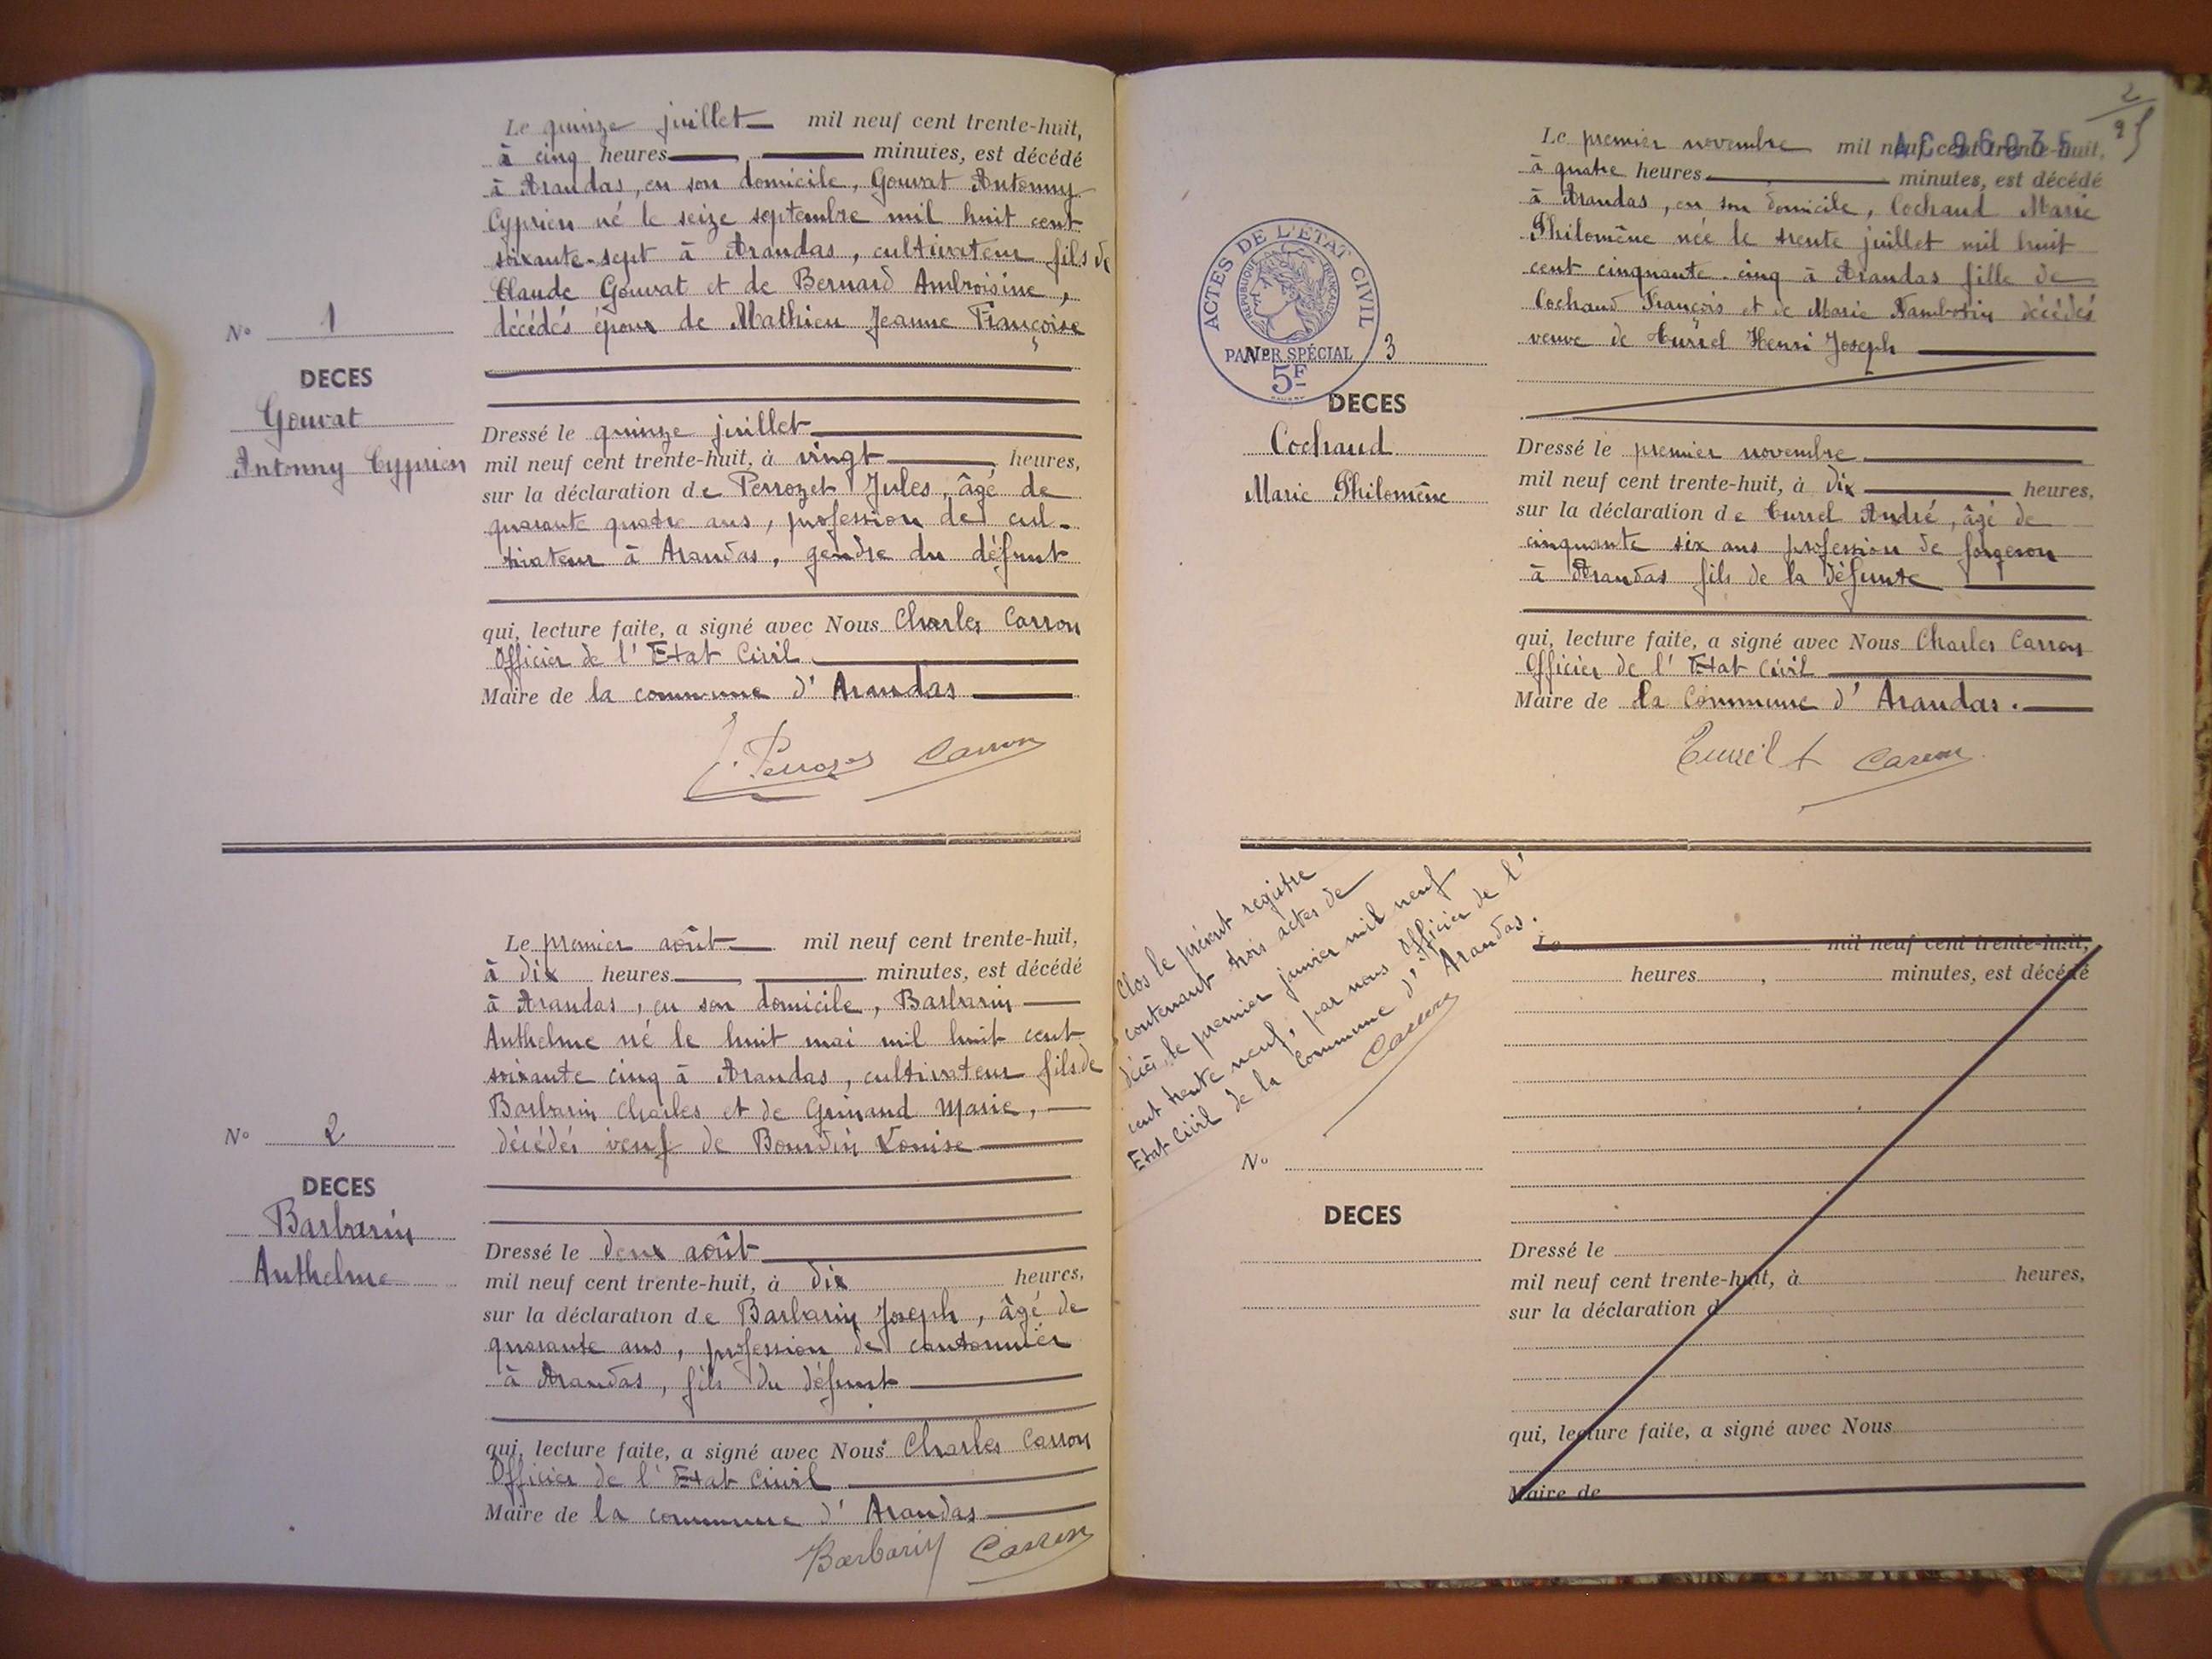 N° 1
DECES
Gouvat
Antonny Cyprien
Le quinze juillet mil neuf cent trente-huit,
à cinq heures , minutes, est décédé
à Arandas, en son domicile, Gouvat Antonny
Cyprien né le seize septembre mil huit cent
soixante-sept à Arandas, cultivateur fils de
Claude Gouvat et de Bernard Ambroisine,
décédés époux de Mathieu Jeanne Françoise
Dressé le quinze juillet
mil neuf cent trente-huit, à vingt heures,
sur la déclaration de Perrozet Jules, âgé de
quarante quatre ans, profession de cul-
tivateur à Arandas, gendre du défunt
qui, lecture faite, a signé avec Nous Charles Carron
Officier de l'Etat Civil
Maire de la commune d'Arandas
J. Perrozet Carron
N° 2
DECES
Barbarin
Anthelme
Le premier août mil neuf cent trente-huit,
à dix heures , minutes, est décédé
à Arandas, en son domicile, Barbarin
Anthelme né le huit mai mil huit cent
soixante cinq à Arandas, cultivateur fils de
Barbarin Charles et de Grinand Marie,
décédés veuf de Bourdin Louise
Dressé le deux août
mil neuf cent trente-huit, à dix heures,
sur la déclaration de Barbarin Joseph, âgé de
quarante ans, profession de cantonnier
à Arandas, fils du défunt
qui, lecture faite, a signé avec Nous Charles Carron
Officier de l'Etat Civil
Maire de la commune d'Arandas
Barbarin Carron
2
ACTES DE L'ETAT CIVIL
REPUBLIQUE FRANÇAISE
PAPIER SPÉCIAL
5F
N° 3
DECES
Cochaud
Marie Philomène
Le premier novembre mil neuf cent trente-huit,
à quatre heures , minutes, est décédé
à Arandas, en son domicile, Cochaud Marie
Philomène née le trente juillet mil huit
cent cinquante-cinq à Arandas fille de
Cochaud François et de Marie Nambotin décédés
veuve de Curel Henri Joseph
Dressé le premier novembre
mil neuf cent trente-huit, à dix heures,
sur la déclaration de Curel André, âgé de
cinquante six ans profession de forgeron
à Arandas fils de la défunte
qui, lecture faite, a signé avec Nous Charles Carron
Officier de l'Etat Civil
Maire de la Commune d'Arandas.
Carron
Clos le présent registre
contenant trois actes de
décès, le premier janvier mil neuf
cent trente neuf, par nous Officier de l'
Etat Civil de la Commune d'Arandas.
Carron
N°
DECES
Le mil neuf cent trente-huit,
heures , minutes, est décédé
Dressé le
mil neuf cent trente-huit, à heures,
sur la déclaration d
qui, lecture faite, a signé avec Nous
Maire de